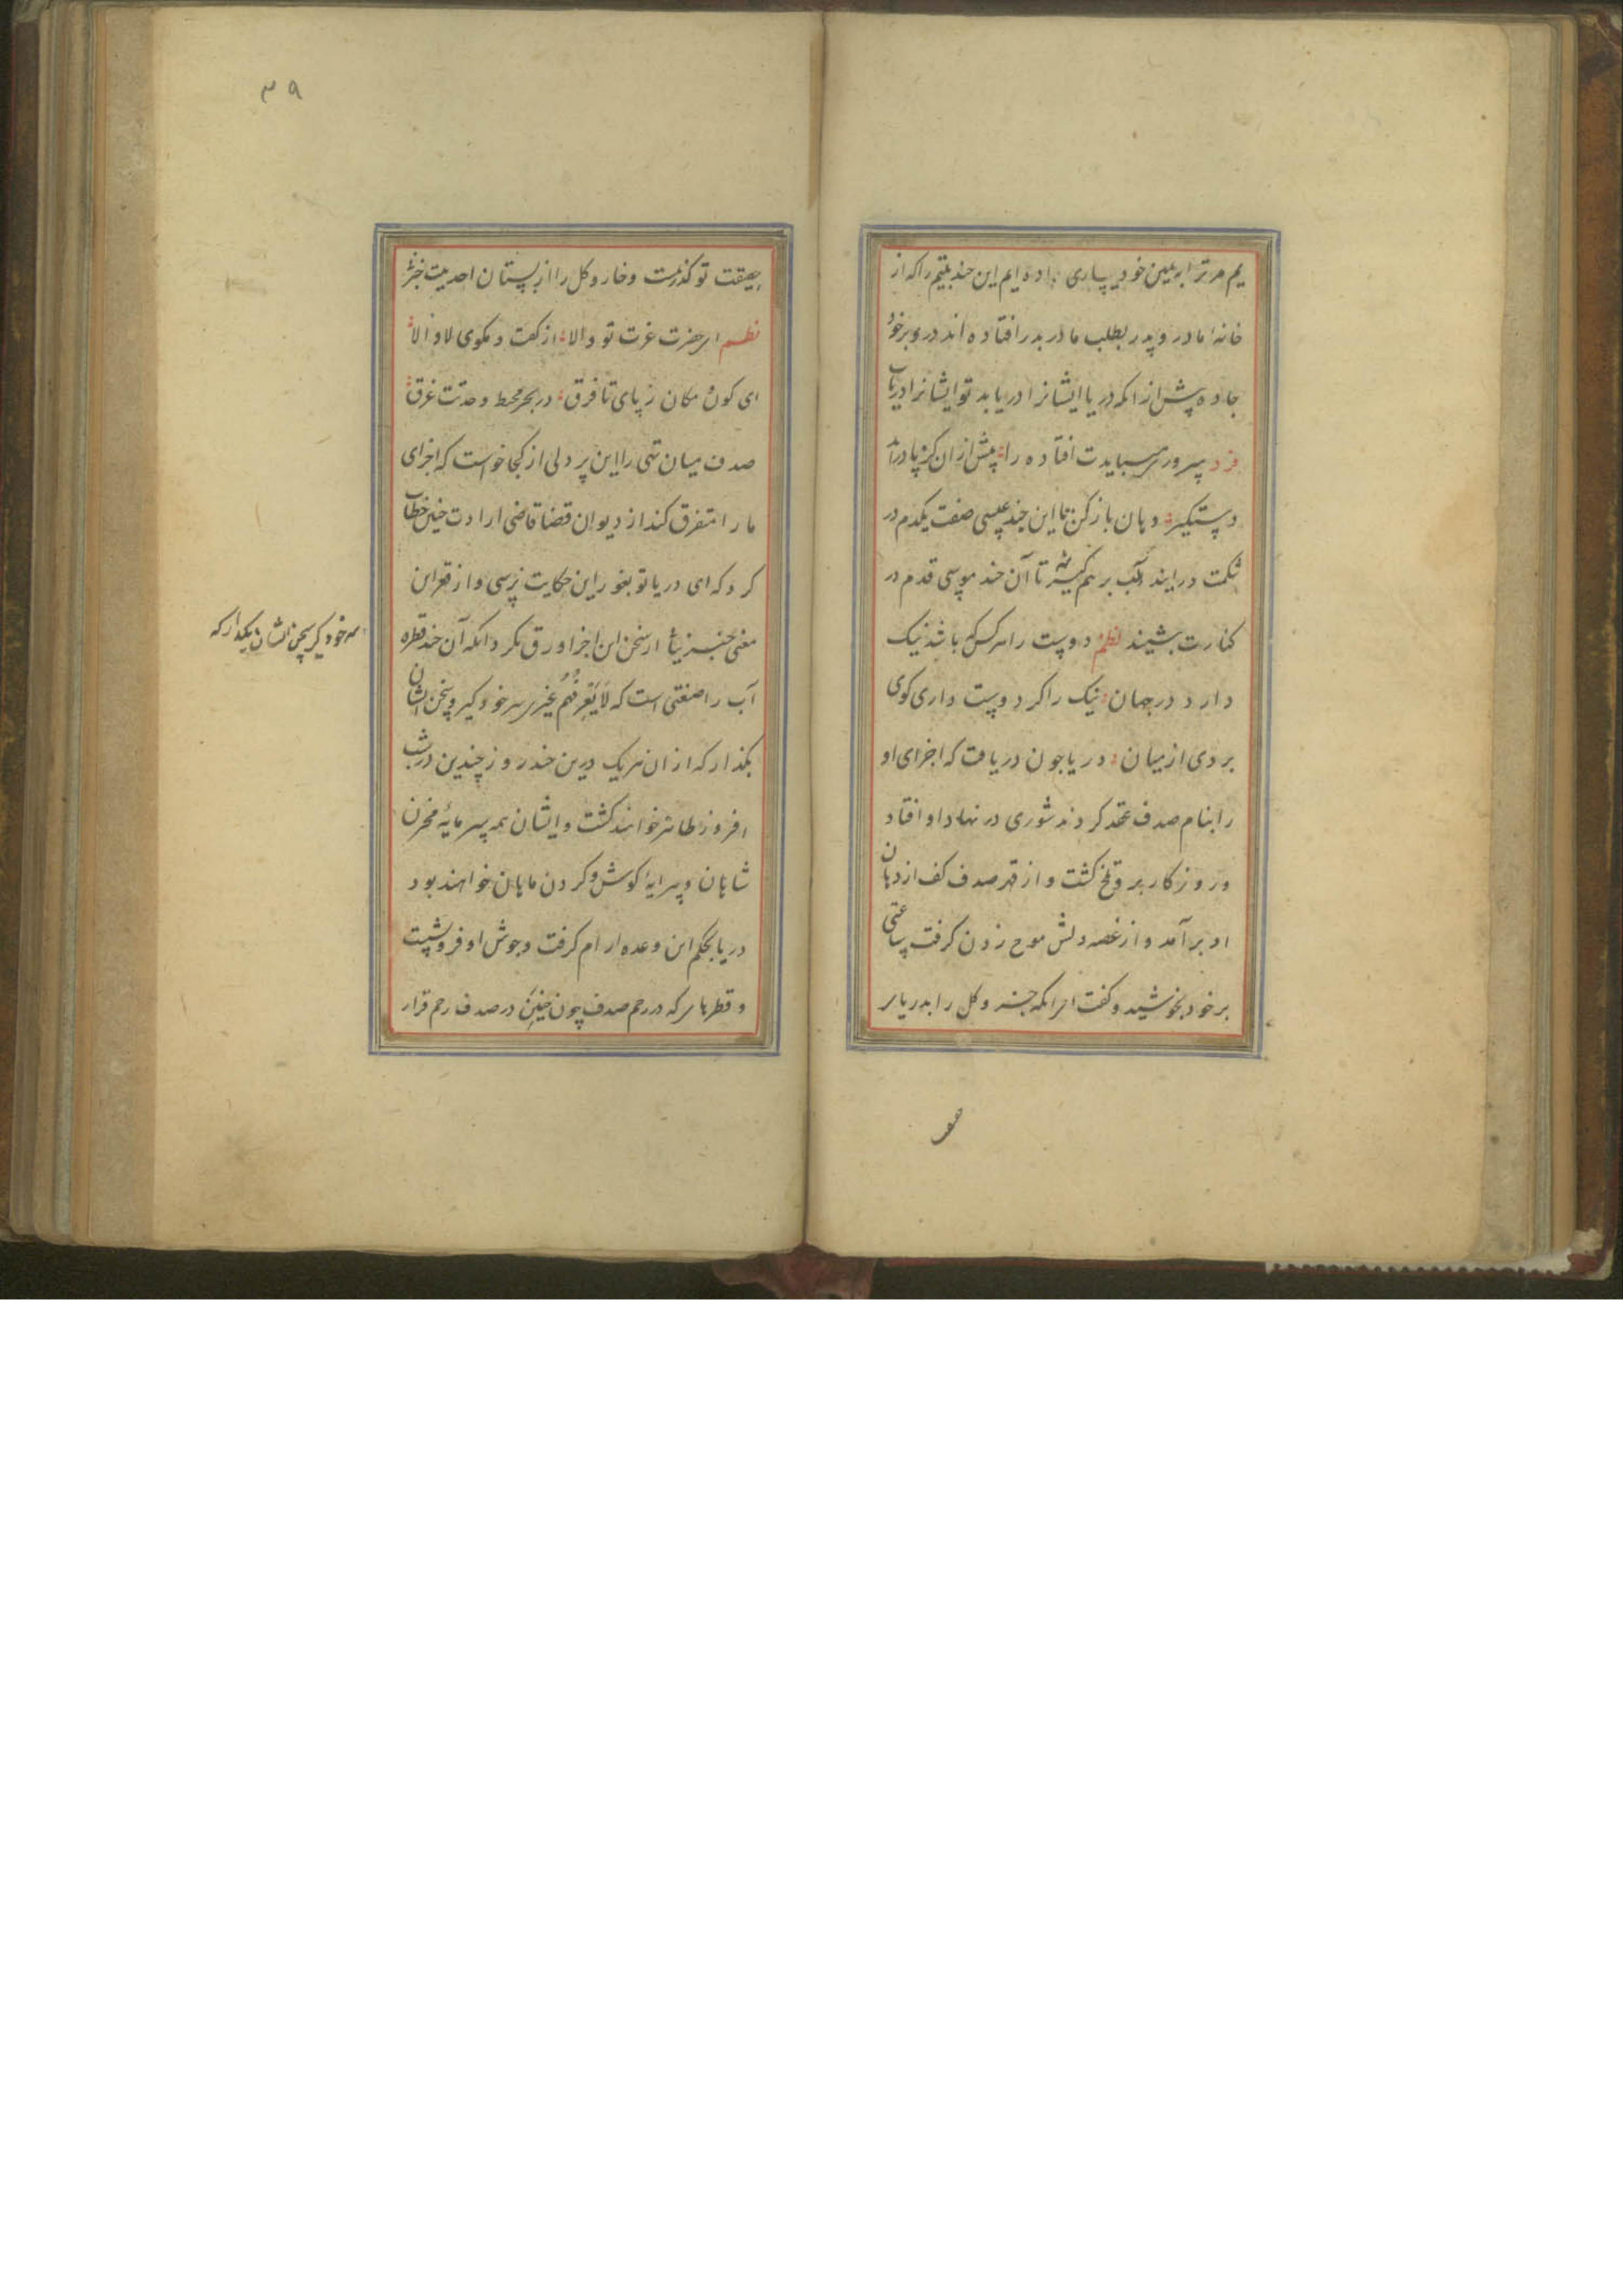 یم مر ترا بر یمین خود یساری داده ایم این چند یتیم را که از
خانه ما در و پدر بطلب ما در بدر افتاده اند در و بر خود
جا ده پیش از انکه دریا ایشانرا دریابد تو ایشانرا دریاب
فرد پرور میبایدت افتاده را پیش از ان کز پا درآید
دستگیر دهان باز کن تا این چند عیسی صفت یکدم در
شکمت درایند لب بر هم گیر تا آن چند موسی قدم در
کنارت بنشیند نظم دوست را هر کس که باشد نیک
دارد در جهان نیک را کر دوست داری کوی
بردی از میان دریا جون دریافت که اجزای او
را بنام صدف عقد کردند شوری در نهاد او افتاد
و روزکار برو تلخ کشت و از قهر صدف کف از دهان
او برآمد و از غصه دلش موج زدن کرفت ساعتی
بر خود بخوشید و کفت ای انکه جزء و کل را بدریای
حقیقت تو کذرست و خار و کل را از بستان احدیت خبر
نظم ای حضرت عزت تو والا از کفت و مکوی لا و الا
ای کون و مکان ز پای تا فرق در بحر محیط وحدتت غرق
صدف میان تهی را این پر دلی از کجا خواست که اجزای
ما را متفرق کند از دیوان قضا قاضی ارادت چنین خطاب
کرد که ای دریا تو بغور این حکایت نرسی و از قعر این
معنی خبر نیابی از سخن این اجزا ورق مکردانکه آن چند قطره
آب را صنعتی است که لایعرفهم غیری سر خود کیر و سخن ایشان
بکذار که از ان هر یک درین چند روز چندین در شب
افروز ظاهر خواهند کشت و ایشان همه سرمایهٔ مخزن
شاهان و پیرایهٔ کوش و کردن ماهان خواهند بود
دریا بحکم این وعده ارام کرفت و جوش او فرو نشست
و قطرهای که در رحم صدف چون جنین در صدف رحم قرار
سر خود کیر سخن ایشان بکذار که
۳۹